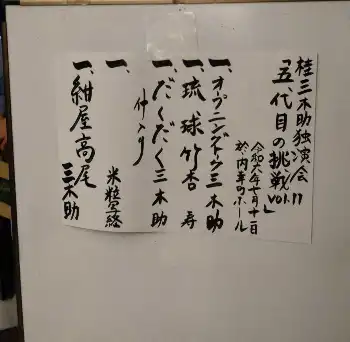 桂三木助独演会
「五代目の挑戦 vol.11」
令和六年七月十一日
於、内幸町ホール
一、オープニングトーク 三木助
一、琉球竹 杏寿
一、だくだく 三木助
仲入り
一、 米粒写経
一、紺屋高尾 三木助